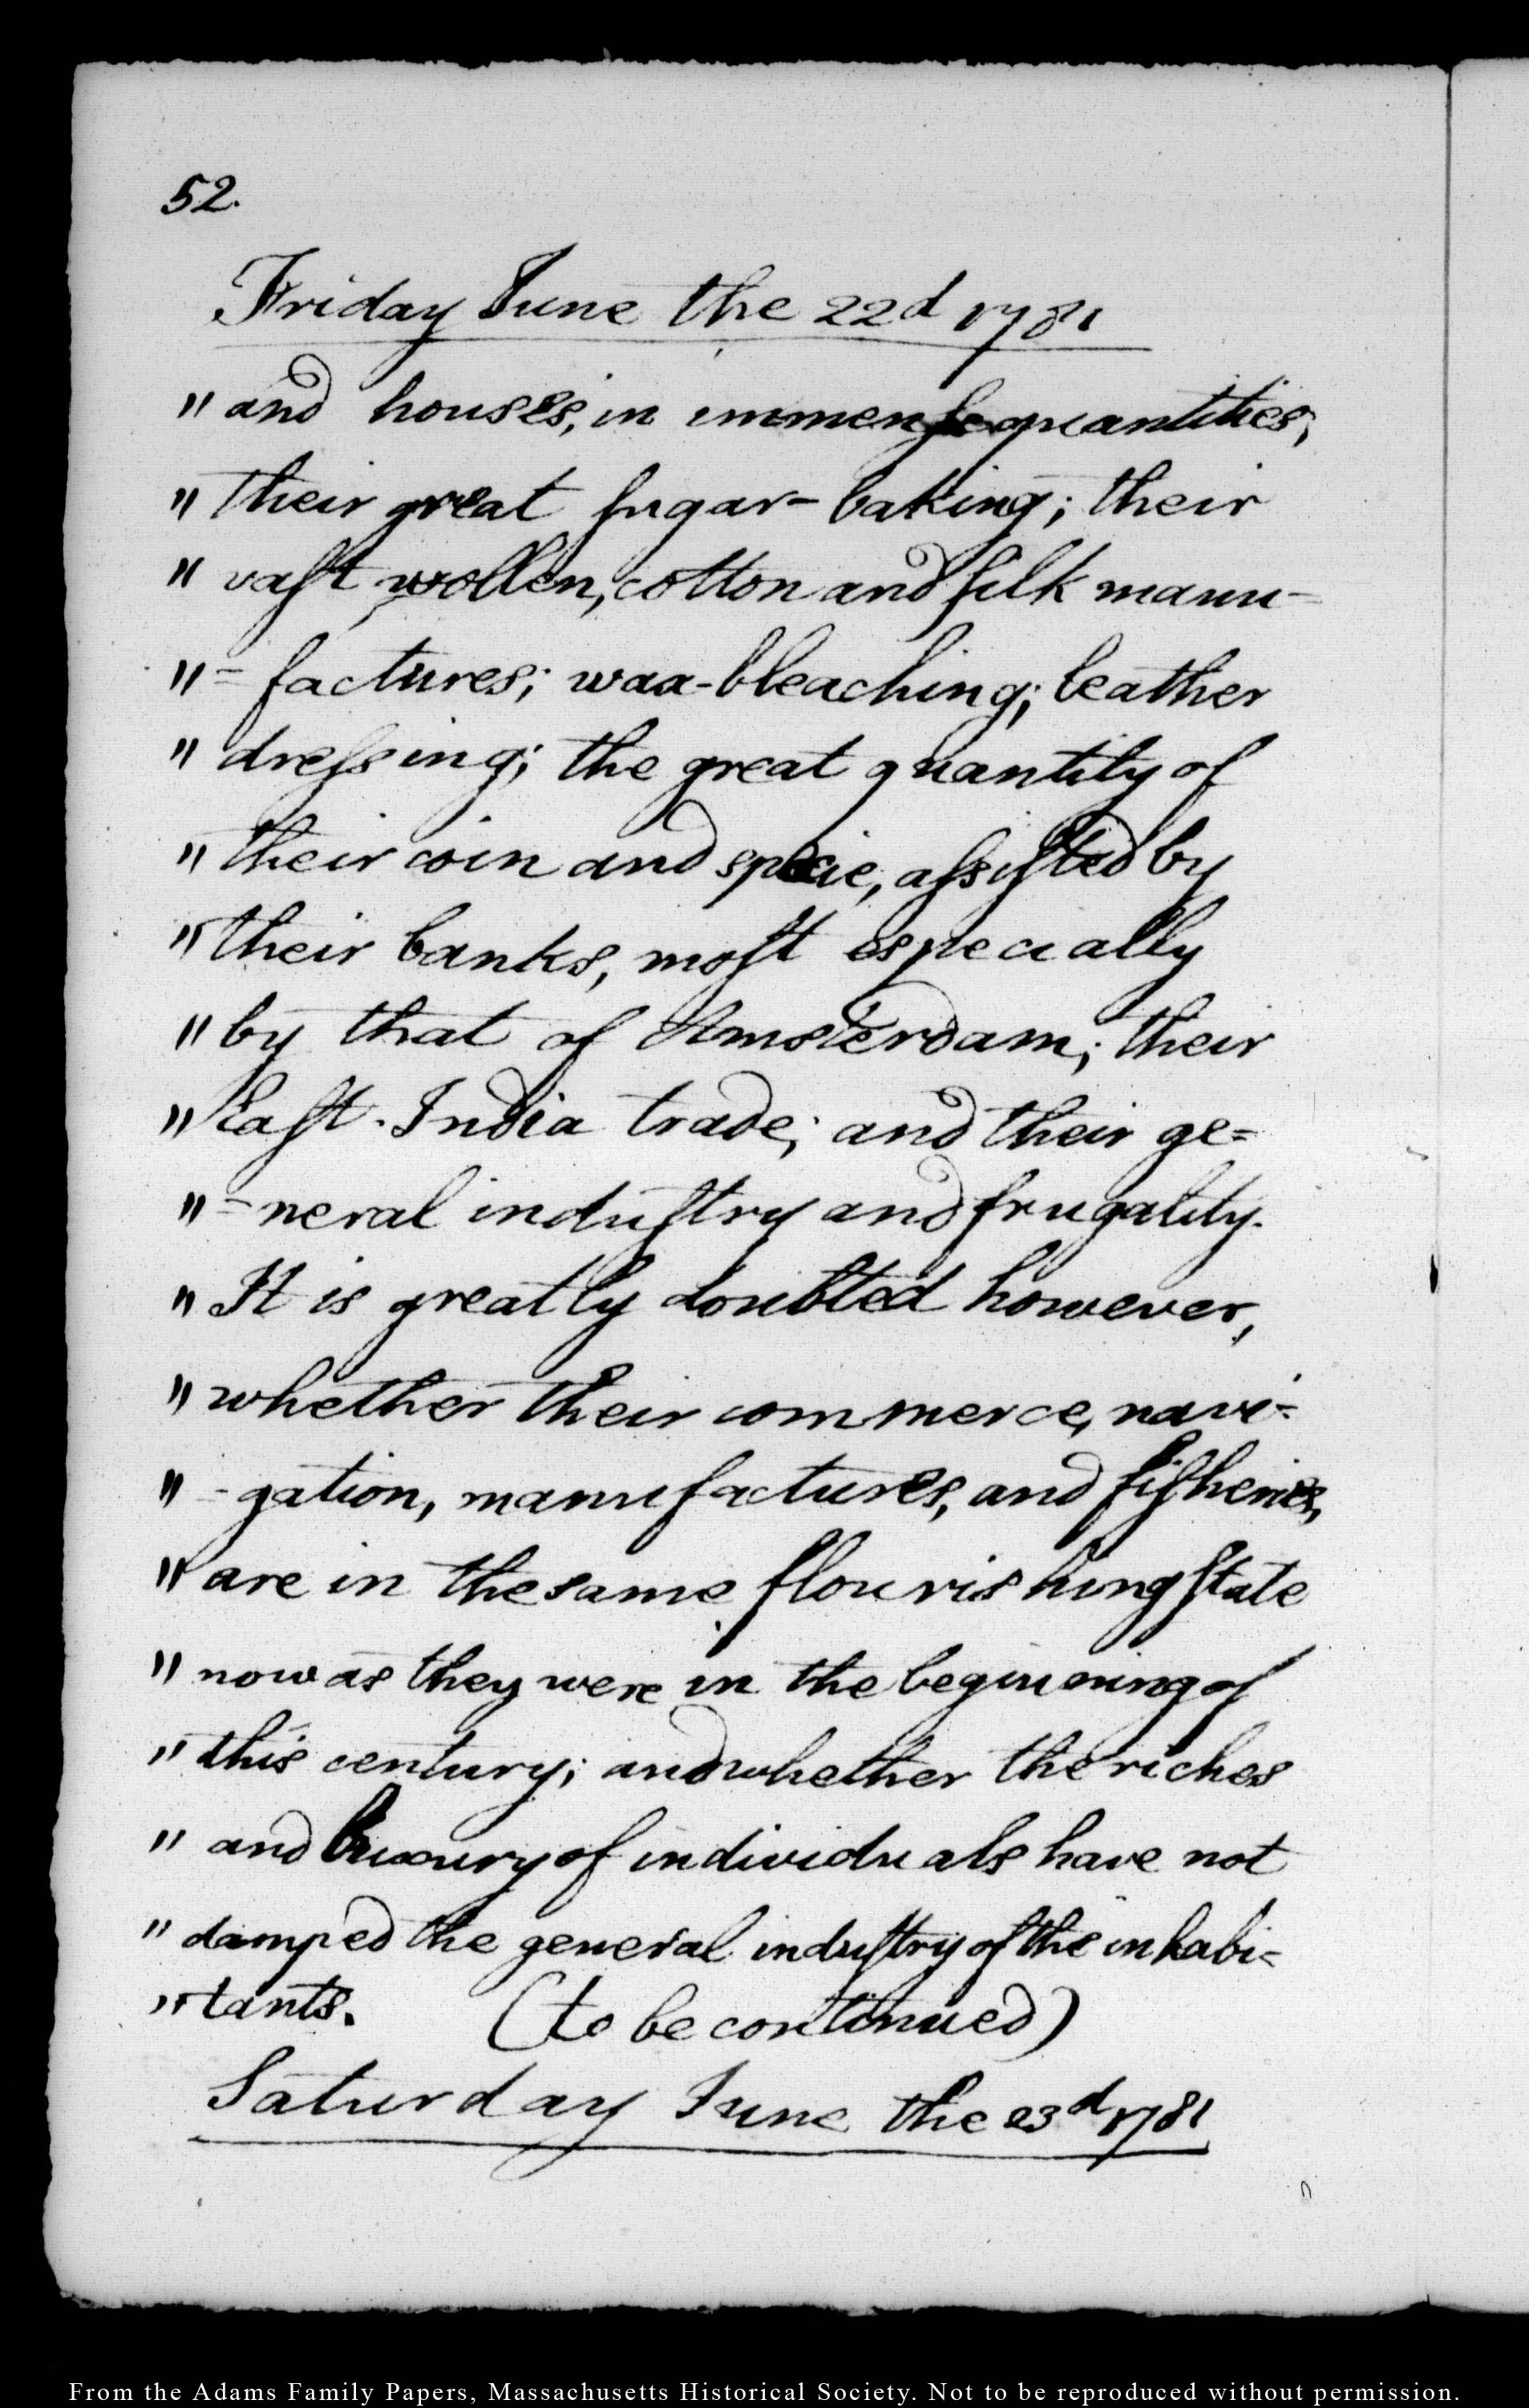 52.
Friday June the 22d 1781
" and houses, in immense quantities;
" their great sugar-baking; their
" vast wollen, cotton and silk manu-
" - factures; wax-bleaching; leather
" dressing; the great quantity of
" their coin and specie, assisted by
" their banks, most especially
" by that of Amsterdam; their
" East-India trade; and their ge=
" - neral industry and frugality.
" It is greatly doubted however,
" whether their commerce, navi-
" - gation, manufactures, and fisheries,
" are in the same flourishing state
" now as they were in the beginning of
" this century; and whether the riches
" and luxury of individuals have not
" damped the general industry of the inhabi-
" tants. (to be continued)
Saturday June the 23d 1781
From the Adams Family Papers, Massachusetts Historical Society. Not to be reproduced without permission.